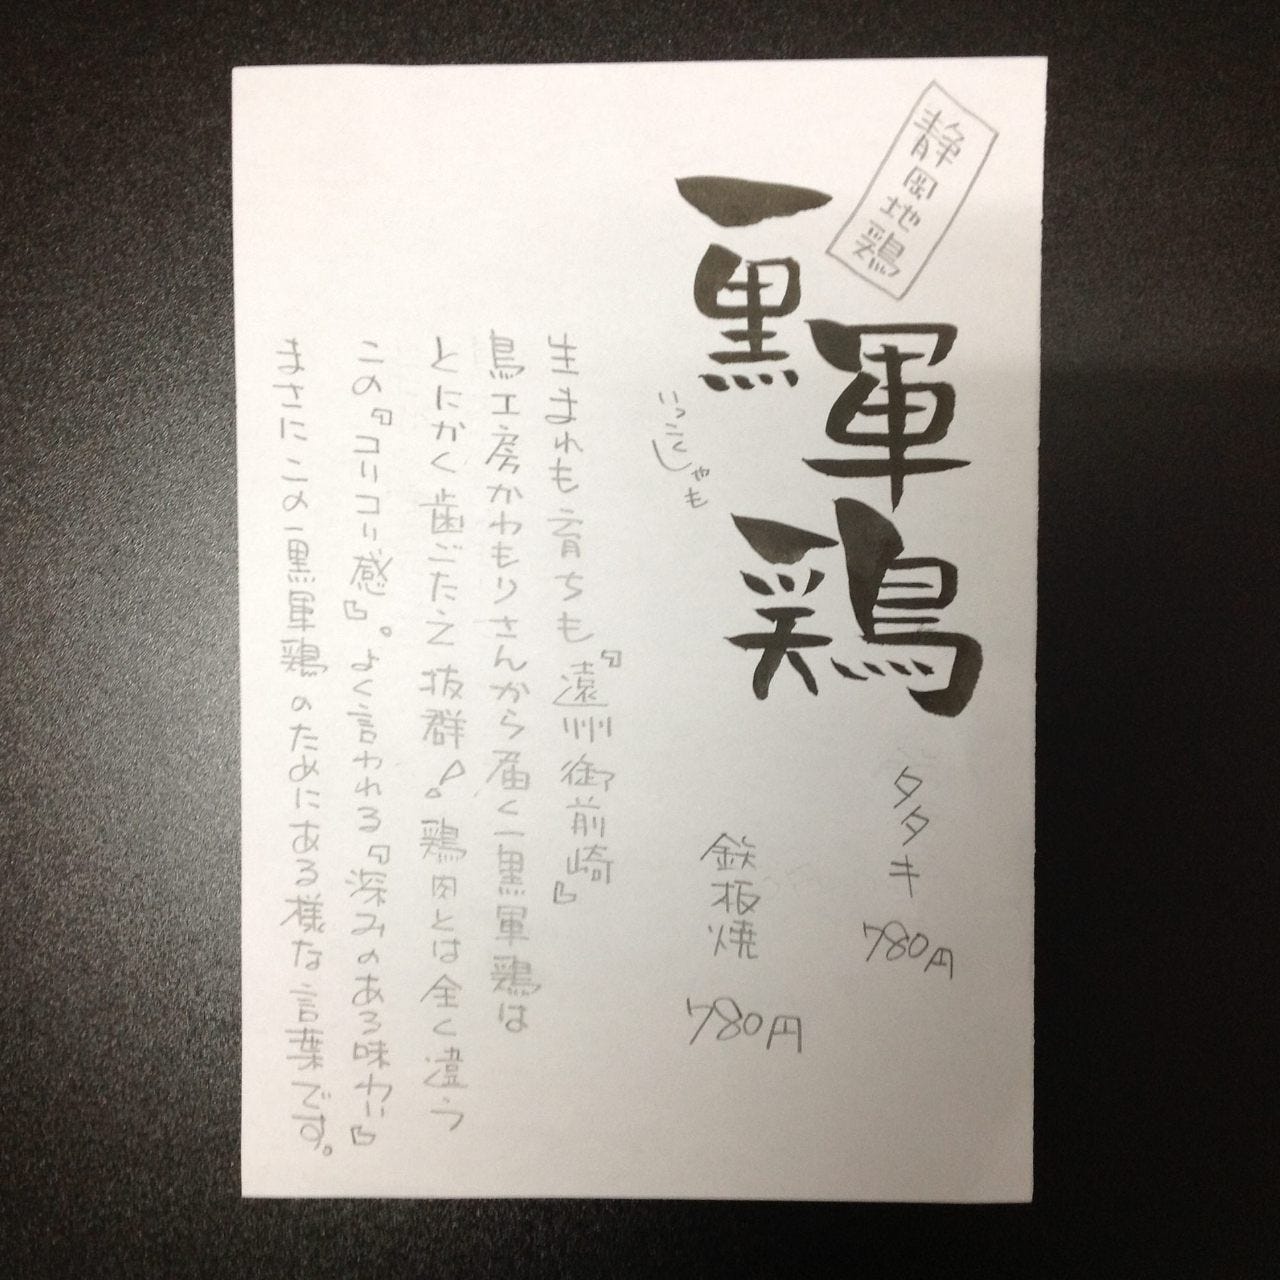 静岡地鶏
一黒軍鶏
いっこくしゃも
タタキ 780円
鉄板焼 780円
生まれも育ちも『遠州御前崎』
鳥工房かわもりさんから届く一黒軍鶏は
とにかく歯ごたえ抜群!鶏肉とは全く違う
この『コリコリ感』。よく言われる『深みのある味わい』
まさにこの一黒軍鶏のためにある様な言葉です。